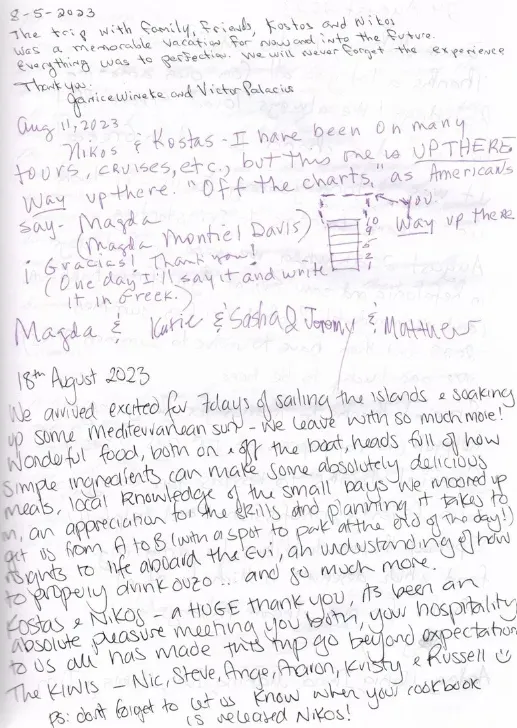 8-5-2023
The trip with family, friends, Kostos and Nikos
was a memorable vacation for now and into the future.
Everything was to perfection. We will never forget the experience
Thank you.
Janice Wineke and Victor Palacius
Aug 11, 2023
Nikos & Kostas - I have been on many
tours, cruises, etc., but this one is UP THERE
Way up there. "Off the charts," as Americans
say - Magda
(Magda Montiel Davis)
you.
Way up there
10
9
¡Gracias! Thank you!
(One day I'll say it and write
it in Greek.)
2
1
Magda & Katie & Sasha & Jeremy & Matthew
18th August 2023
We arrived excited for 7days of sailing the islands & soaking
up some mediterranean sun - we leave with so much more!
Wonderful food, both on & off the boat, heads full of how
simple ingredients can make some absolutely delicious
meals, local knowledge of the small bays we moored up
in, an appreciation for the skills and planning it takes to
get us from A to B (with a spot to park at the end of the day!)
insights to life aboard the Evi, an understanding of how
to properly drink ouzo ... and so much more.
Kostas & Nikos - a HUGE thank you, its been an
absolute pleasure meeting you both, your hospitality
to us all has made this trip go beyond expectation
The KIWIS - Nic, Steve, Ange, Aharon, Kristy & Russell
Ps: dont forget to let us know when your cookbook
is released Nikos!